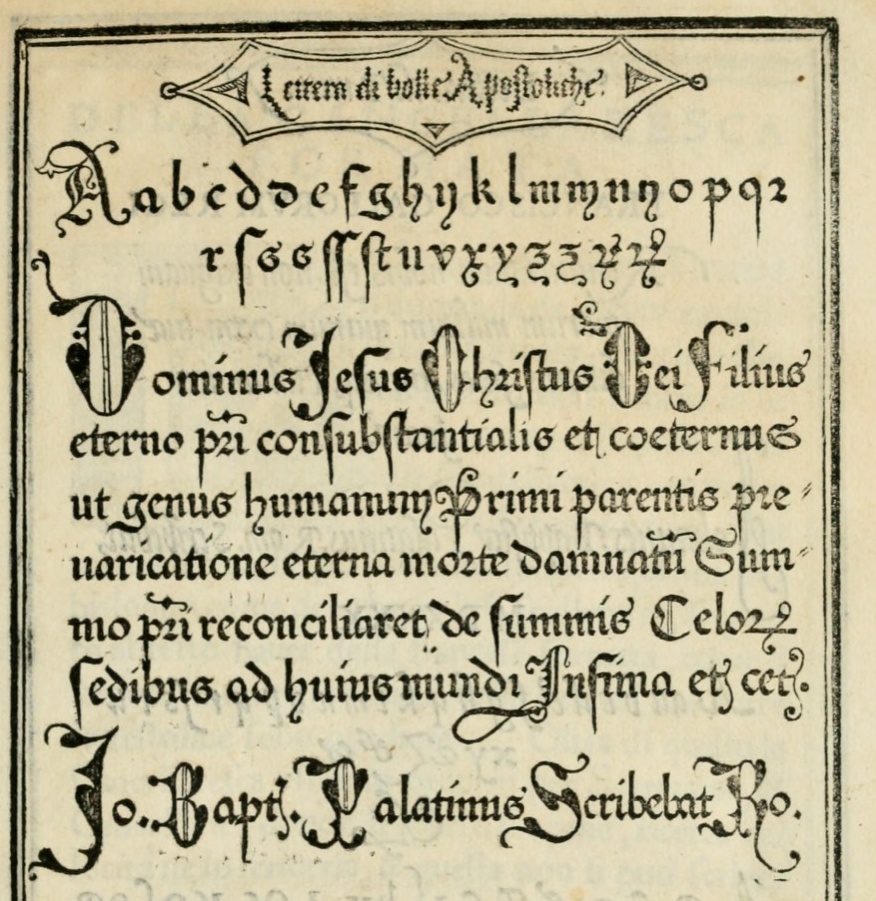 Lettera di bolle Apostoliche.
A a b c d d e f g h ij k l m m n n o p q r
r ſ s s ſſ ſt u v x y z z ꝝ ꝝ
Dominus Jeſus Chriſtus Dei Filius
eterno pr̄i conſubſtantialis et coeternus
ut genus humanum Primi parentis pre-
uaricatione eterna morte damnatū Sum-
mo pr̄i reconciliaret de ſummis Celoꝝ
ſedibus ad huius mundi Inſima et cet.
Jo. Bapt. Palatinus Scribebat Ro.